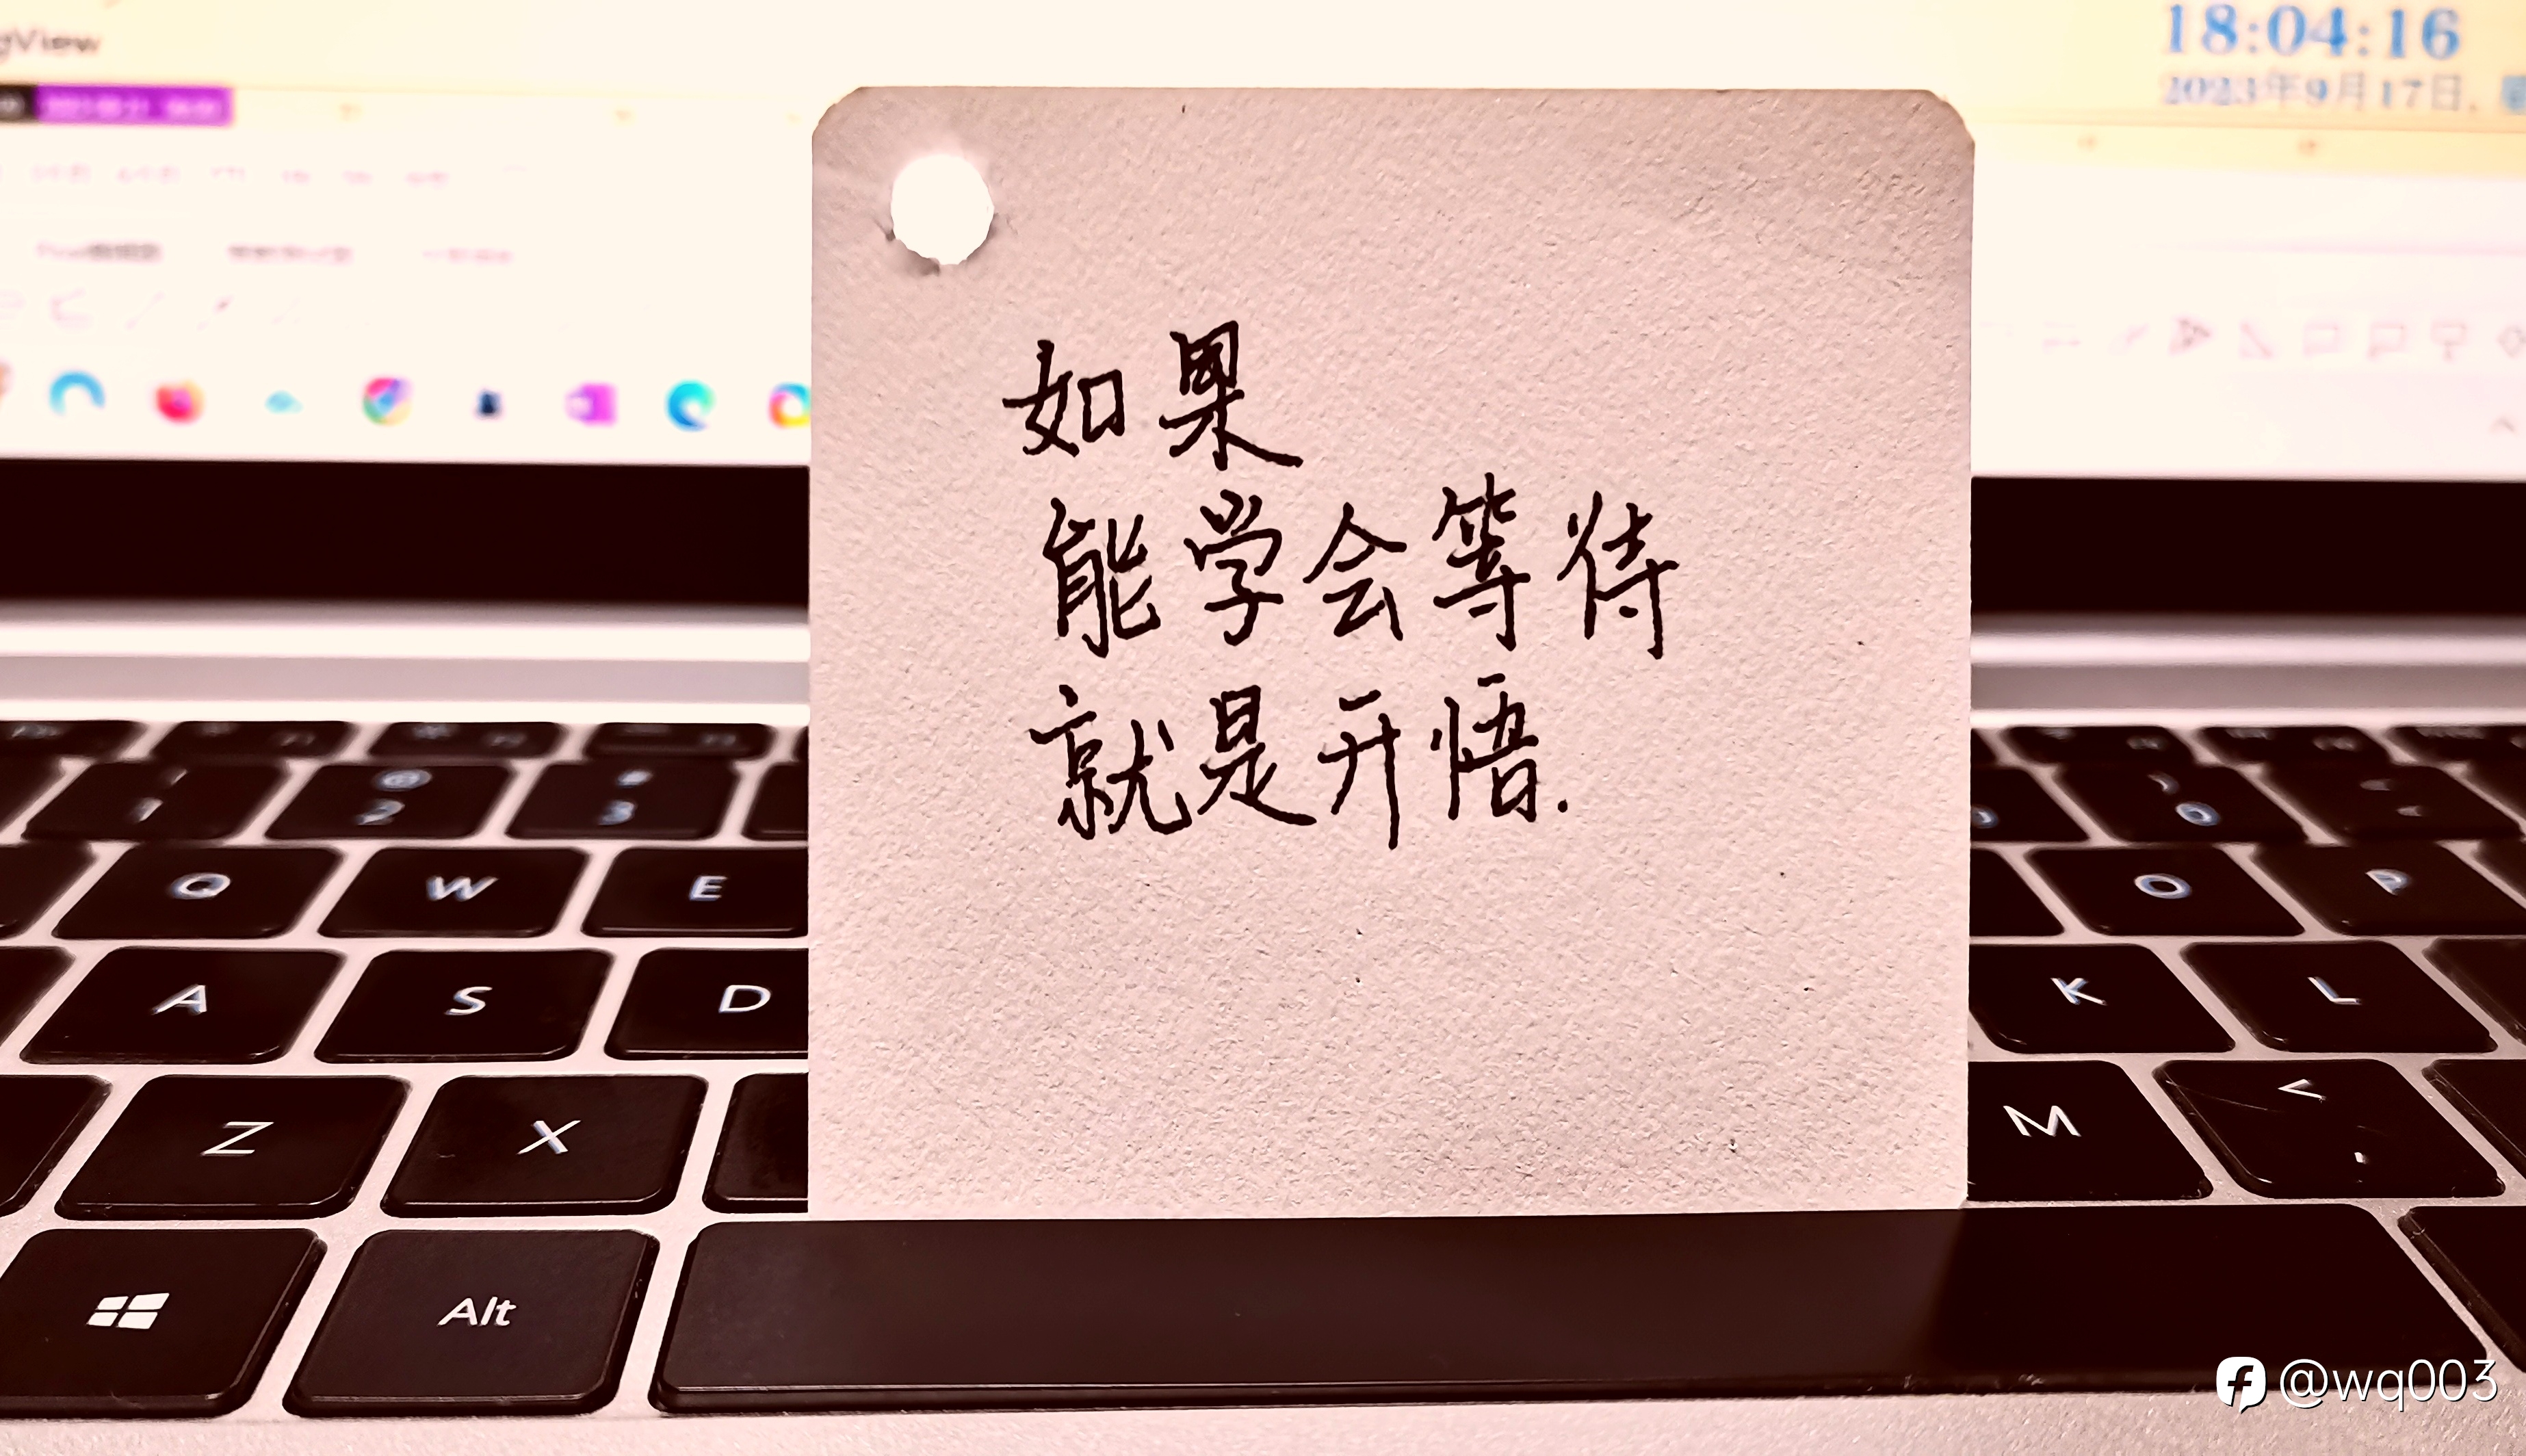 gView
18:04:16
2023年9月17日,
如果
能学会等待
就是开悟.
@
1 2 3
0
Q W E
O P
A S D
K L
Z X
M
<
,
Alt
@wq003